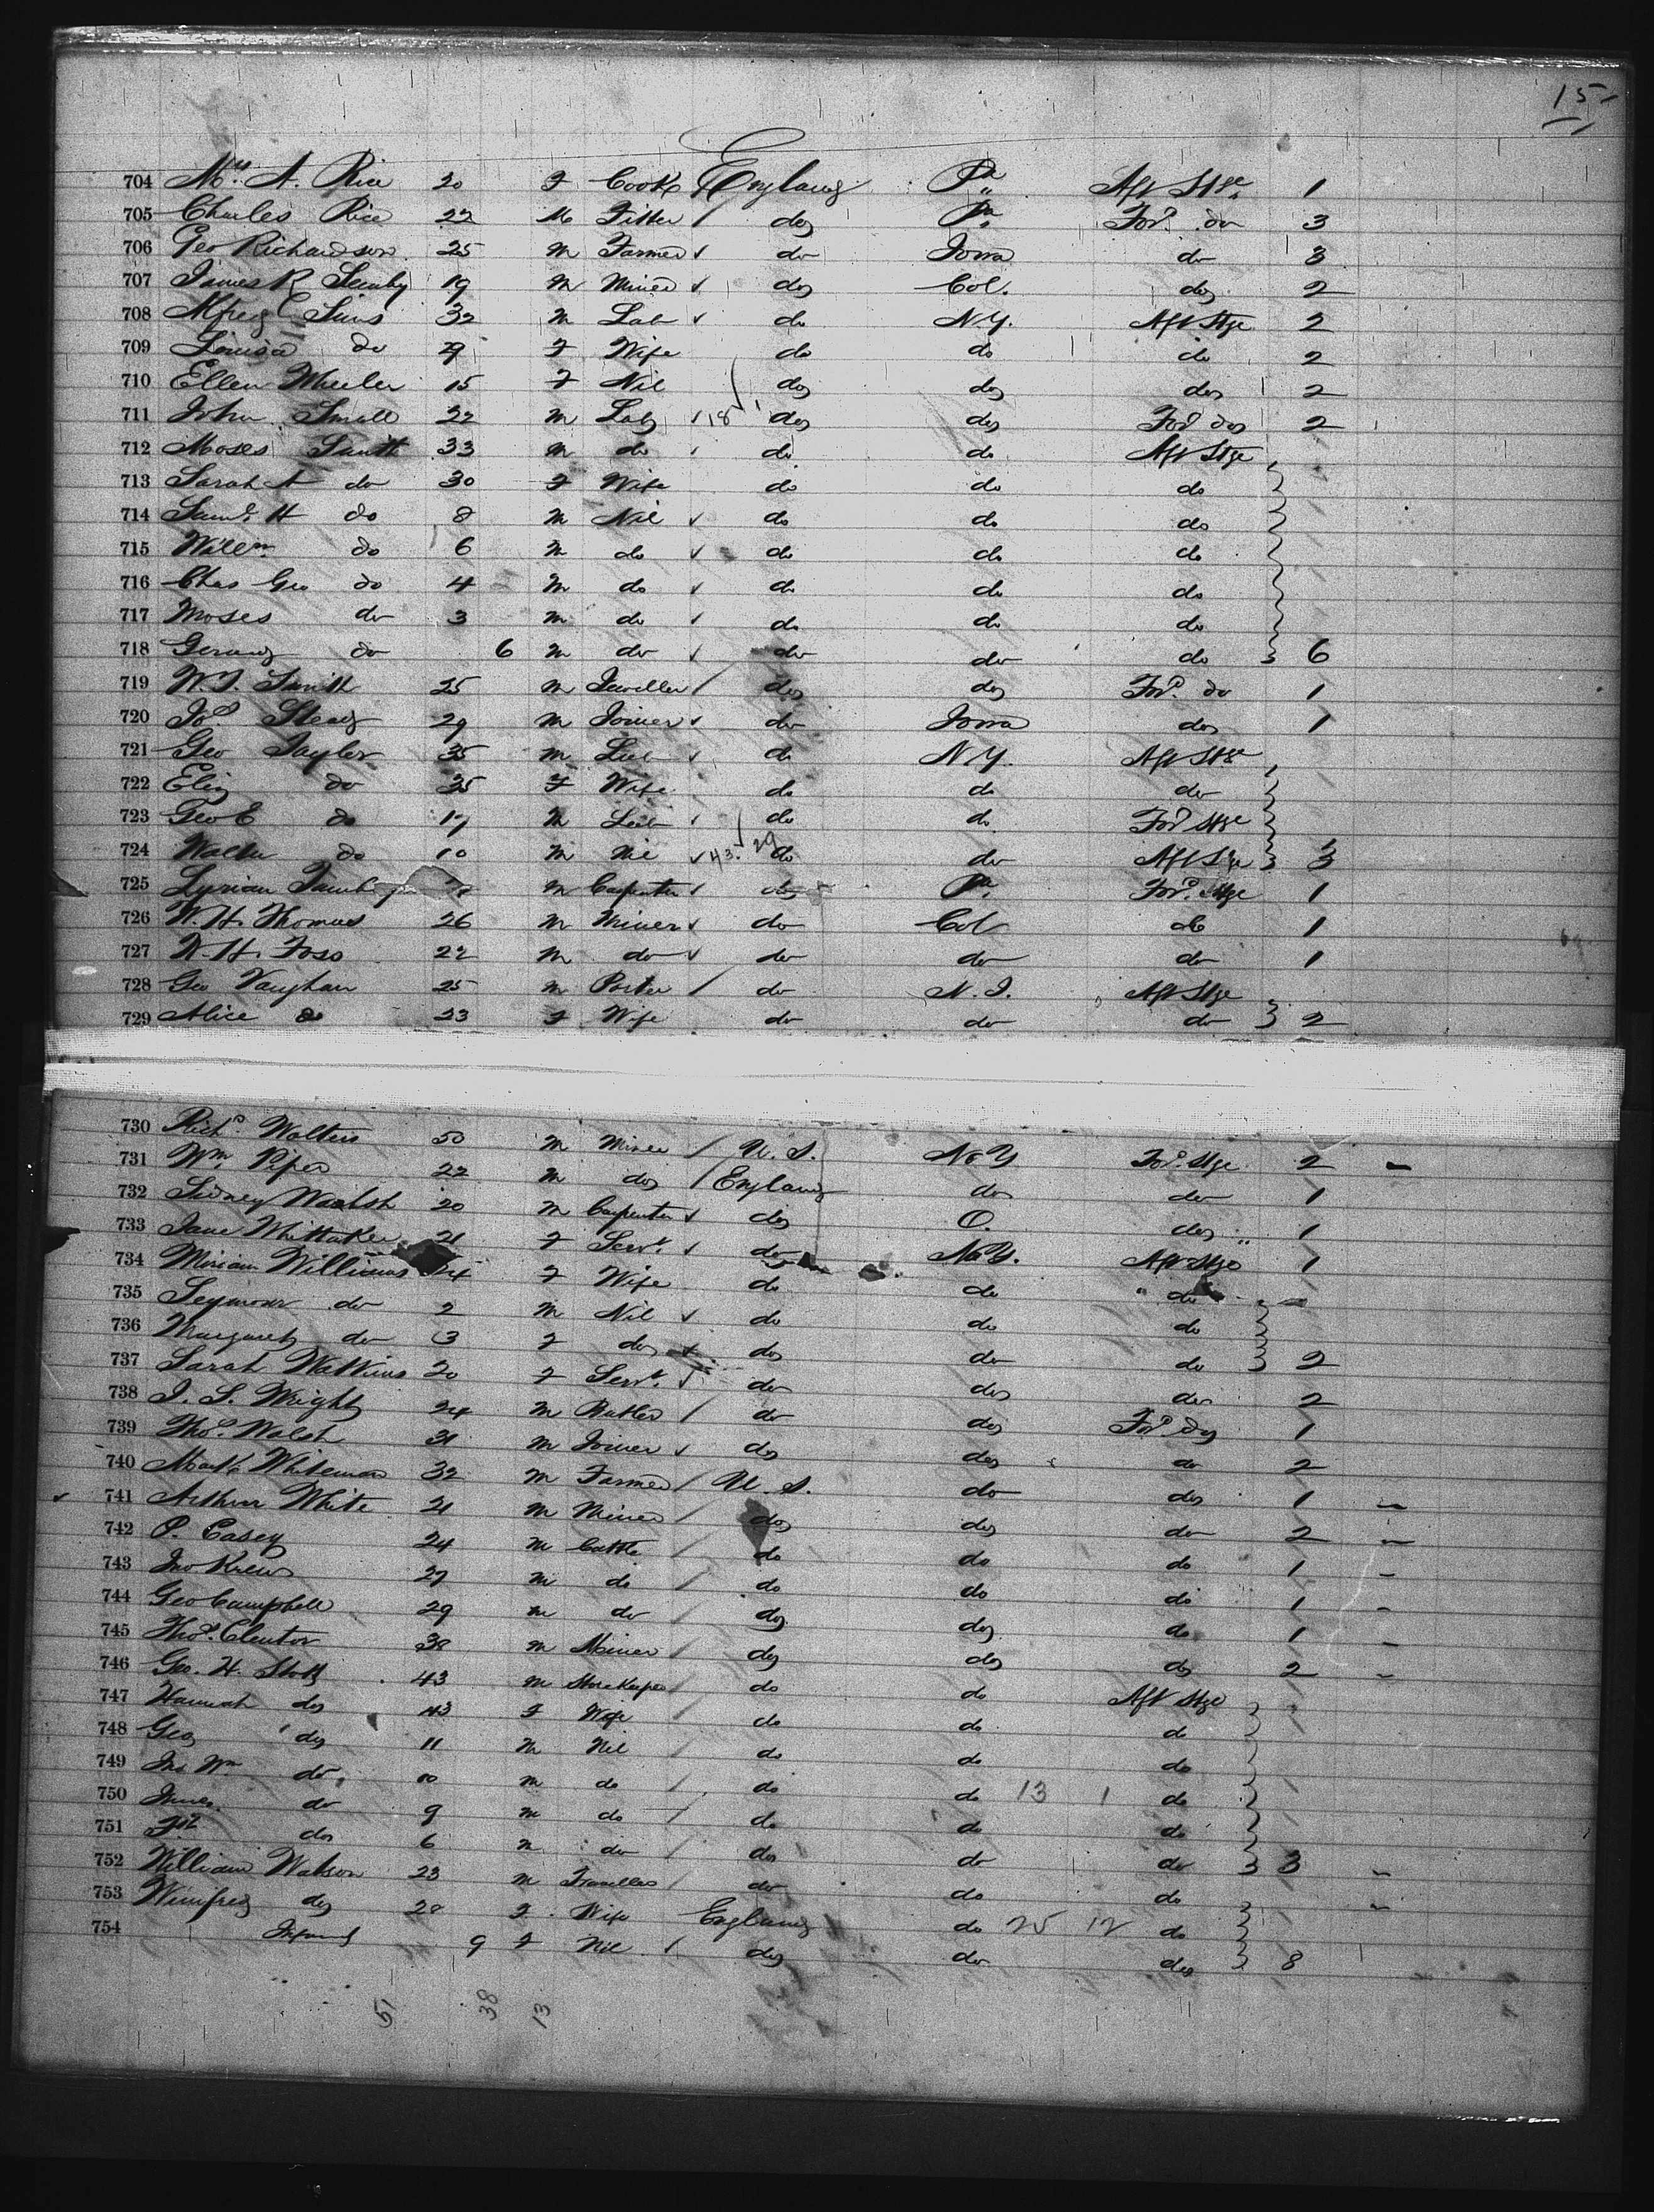 15
704 Mrs. A. Rice 20 F Cook England Pa Aft Stge 1
705 Charles Rice 22 M Fitter / do Pa Ford. do 3
706 Geo Richardson 25 M Farmer ✓ do Iowa do 3
707 James R 19 M Miner ✓ do Col. do 2
708 Alfred C Sims 32 M Lab ✓ do N.Y. Aft Stge 2
709 Louisa do 29 F Wife do do do 2
710 Ellen Wheeler 15 F Nil do do do 2
711 John Small 22 M Lab ✓ 18 do do Ford do 2
712 Moses Smith 33 M do do do Aft Stge
713 Sarah A do 30 F Wife do do do
714 Saml. H do 8 M Nil ✓ do do do
715 Willm do 6 M do ✓ do do do
716 Chas Geo do 4 M do ✓ do do do
717 Moses do 3 M do ✓ do do do
718 do 6 M do ✓ do do do 6
719 W.J. Smith 25 M Jeweller / do do Ford. do 1
720 Jos. 29 M Joiner ✓ do Iowa do 1
721 Geo Taylor 35 M Lab ✓ do N.Y. Aft Stge
722 Eliz do 35 F Wife do do do
723 Geo E do 17 M Lab do do Ford Stge
724 Walter do 10 M Nil ✓ 43. 29 do do Aft Stge 3
725 M Carpenter ✓ do Pa. Ford. Stge 1
726 W.H. Thomas 26 M Miner ✓ do Col do 1
727 W.H. 22 M do ✓ do do do 1
728 Geo Vaughan 25 M Porter / do N.J. Aft Stge
729 Alice do 23 F Wife do do do 2
730 Richd. Walters 50 M Miner / U.S. N.Y Ford. Stge 2 –
731 Wm. Piper 22 M do / England do do 1
732 Sidney Walsh 20 M Carpenter ✓ do O. do 1
733 Jane Whittaker 21 F Servt. ✓ do N.Y. Aft Stge 1
734 Miriam Williams 24 F Wife do do do
735 Seymour do 2 M Nil ✓ do do do
736 Margaret do 3 F do ✓ do do do 2
737 Sarah Watkins 20 F Servt. ✓ do do do 2
738 J.S. Wright 24 M Butler / do do Ford do 1
739 Thos. Walsh 31 M Joiner ✓ do do do 2
740 Mark Whiteman 32 M Farmer / U.S. do do 1 –
741 Arthur White 21 M Miner / do do do 2 –
742 P. Casey 24 M Cattle / do do do 1 –
743 Jno 27 M do / do do do 1 –
744 Geo Campbell 29 M do / do do do 1 –
745 Thos. Clentor 38 M Miner / do do do 2 –
746 Geo. H. Stott 43 M Storekeeper do do Aft Stge
747 Hannah do 43 F Wife / do do do
748 Geo do 11 M Nil / do do do
749 Jno Wm do 10 M do / do do 13 1 do
750 do 9 M do / do do do
751 do 6 M do / do do do 3 –
752 William Watson 23 M Traveller / do do do –
753 Winifred do 28 F Wife England do 25 12 do
754 Infant 9 F Nil ✓ do do do 8
51 38 13